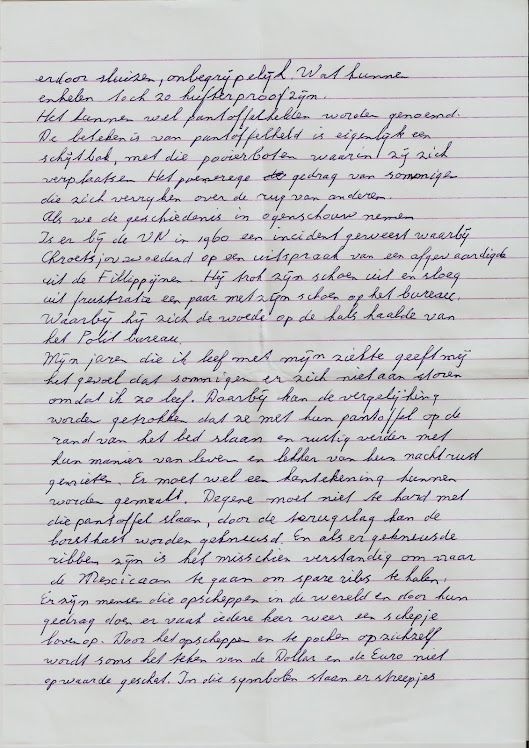 erdoor sluizen, onbegrijpelijk. Wat kunnen
enkelen toch zo hufterproof zijn.
Het kunnen wel pantoffelhelden worden genoemd.
De betekenis van pantoffelheld is eigenlijk een
schijtbak, met die pooierboten waarin zij zich
verplaatsen. Het poenerege gedrag van sommigen
die zich verryken over de rug van anderen.
Als we de geschiedenis in ogenschouw nemen
Is er bij de VN in 1960 een incident geweest waarbij
Chroetsjov woederd op een uitspraak van een afgevaardigde
uit de Fillippijnen. Hij trok zijn schoen uit en sloeg
uit frustratie een paar met zijn schoen op het bureau.
Waarbij hij zich de woede op de hals haalde van
het Polit bureau.
Mijn jaren die ik leef met mijn ziekte geeft mij
het gevoel dat sommigen er zich niet aan storen
omdat ik zo leef. Daarbij kan de vergelijking
worden getrokken dat ze met hun pantoffel op de
rand van het bed slaan en rustig verder met
hun manier van leven en lekker van hun nachtrust
genieten. Er moet wel een kantekening kunnen
worden gemaakt. Degene moet niet te hard met
die pantoffel slaan, door de terugslag kan de
borstkast worden gekneusd. En als er gekneusde
ribben zijn is het misschien verstandig om naar
de Mexicaan te gaan om spare ribs te halen.
Er zijn mensen die opscheppen in de wereld en door hun
gedrag doen er vaak iedere keer weer een schepje
bovenop. Door het opscheppen en te pochen op zichzelf
wordt soms het teken van de Dollar en de Euro niet
op waarde geschat. In die symbolen staan er streepjes